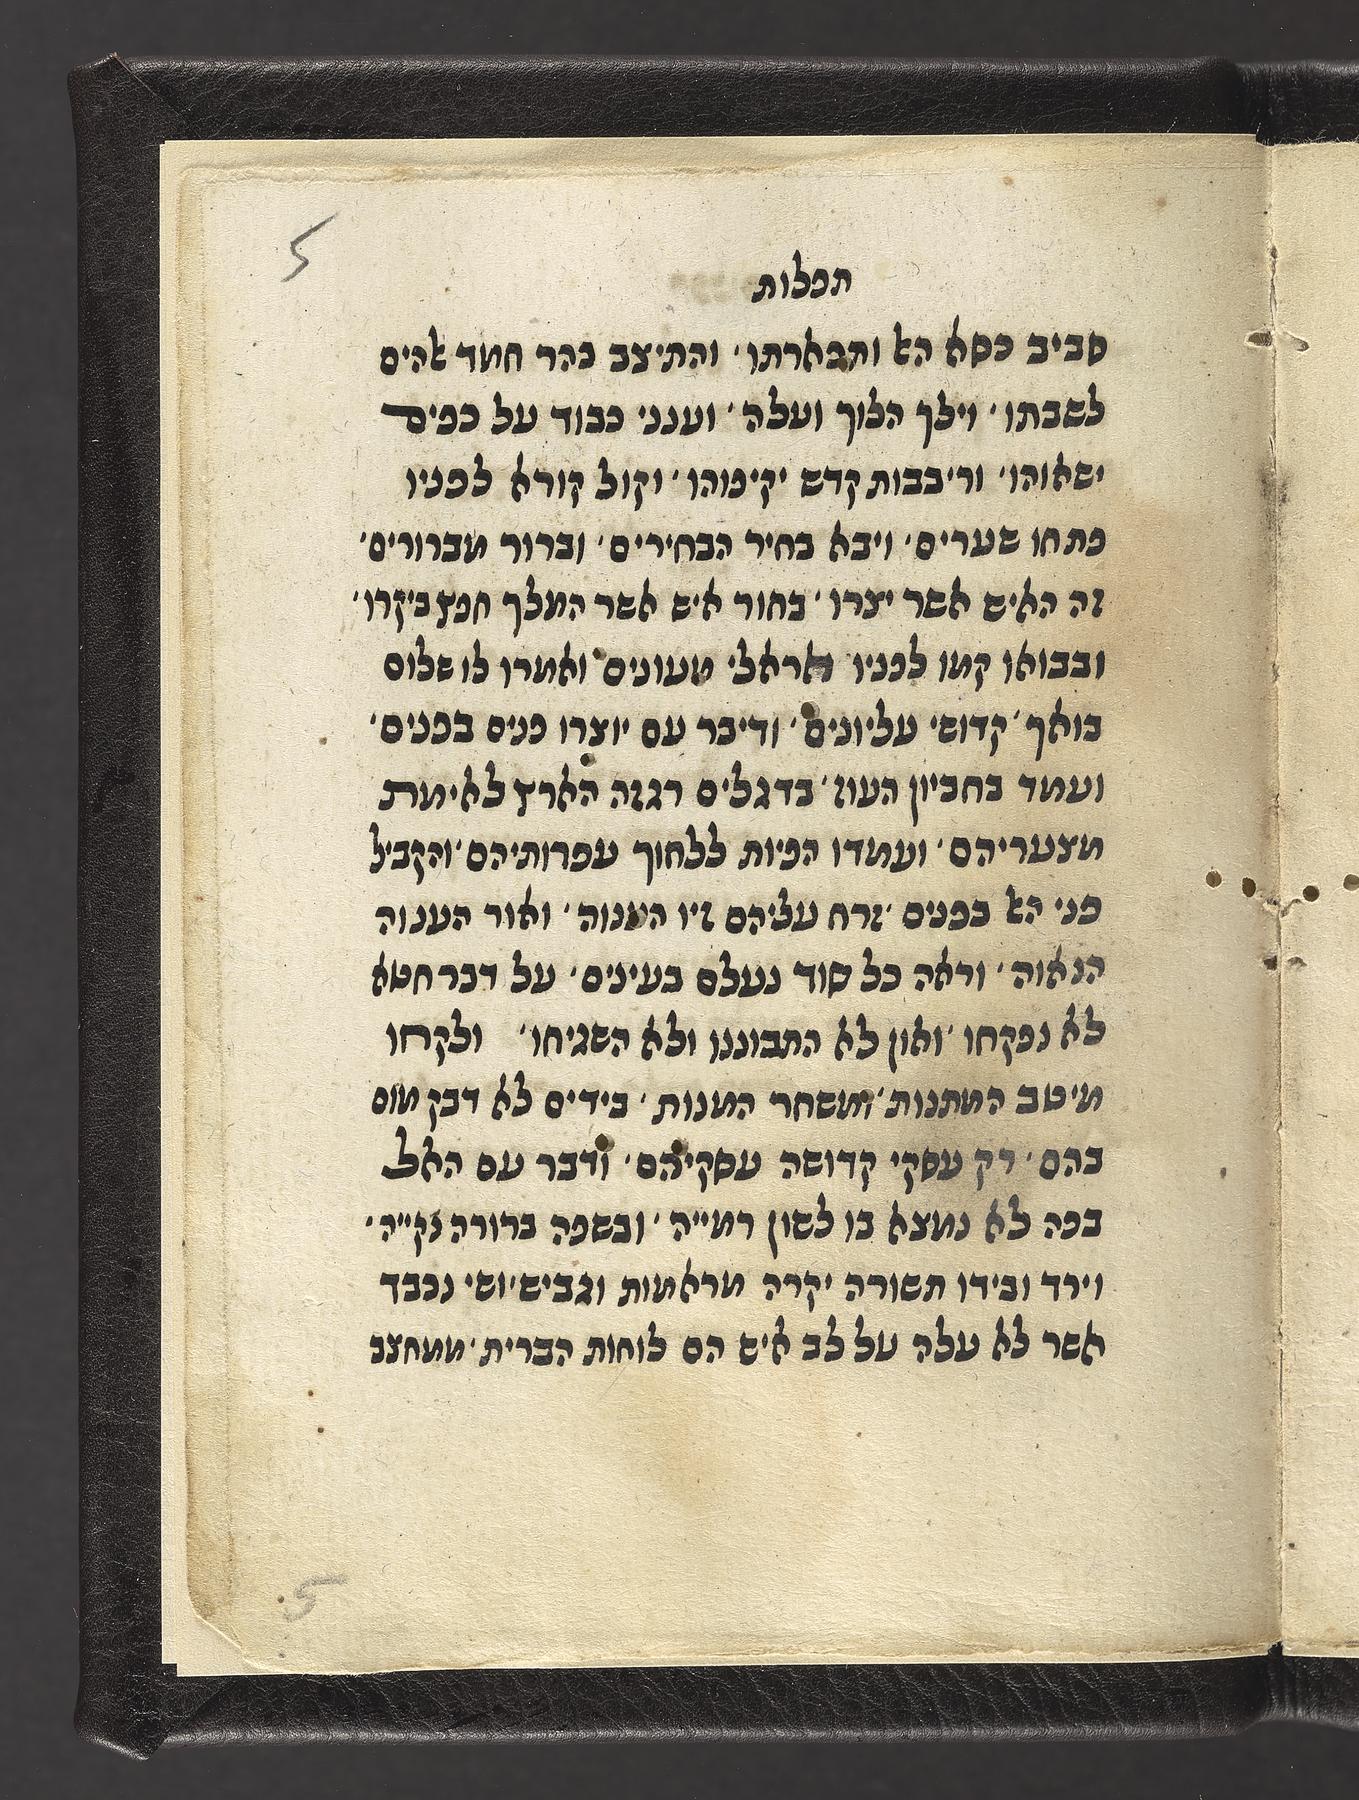 5
תפלות
סביב כסא הﭏ ותפארתו׳ והתיצב בהר חמד ﭏהים
לשבתו׳ וילך הלוך ועלה׳ וענני כבוד על כפים
ישאוהו׳ וריבבות קדש יקימוהו׳ וקול קורא לפניו
פתחו שערים׳ ויבא בחיר הבחירים׳ וברור מברורים׳
זה האיש אשר יצרו׳ בחור איש אשר המלך חפץ ביקרו׳
ובבואו קמו לפניו אראלי מעונים ואמרו לו שלום
בואך׳ קדושי עליונים׳ ודיבר עם יוצרו פנים בפנים׳
ועמד בחביון העוז׳ בדגלים רגזה הארץ לאימת
מצעריהם׳ ועמדו הפיות ללחוך עפרותיהם׳ והקביל
פני הﭏ בפנים׳ זרח עליהם זיו הענוה׳ ואור הענוה
הנאוה׳ וראה כל סוד נעלם בעינים׳ על דבר חטא
לא נפקחו׳ ואון לא התבוננו ולא השגיחו׳ ולקחו
מיטב המתנות׳ ומשחר המנות׳ בידים לא דבק מום
בהם׳ רק עסקי קדושה עסקיהם׳ ודבר עם האל
בפה לא נמצא בו לשון רמייה׳ ובשפה ברורה נקייה׳
וירד ובידו תשורה יקרה מראמות וגביש׳ ושי נכבד
אשר לא עלה על לב איש הם לוחות הברית׳ ממחצב
5